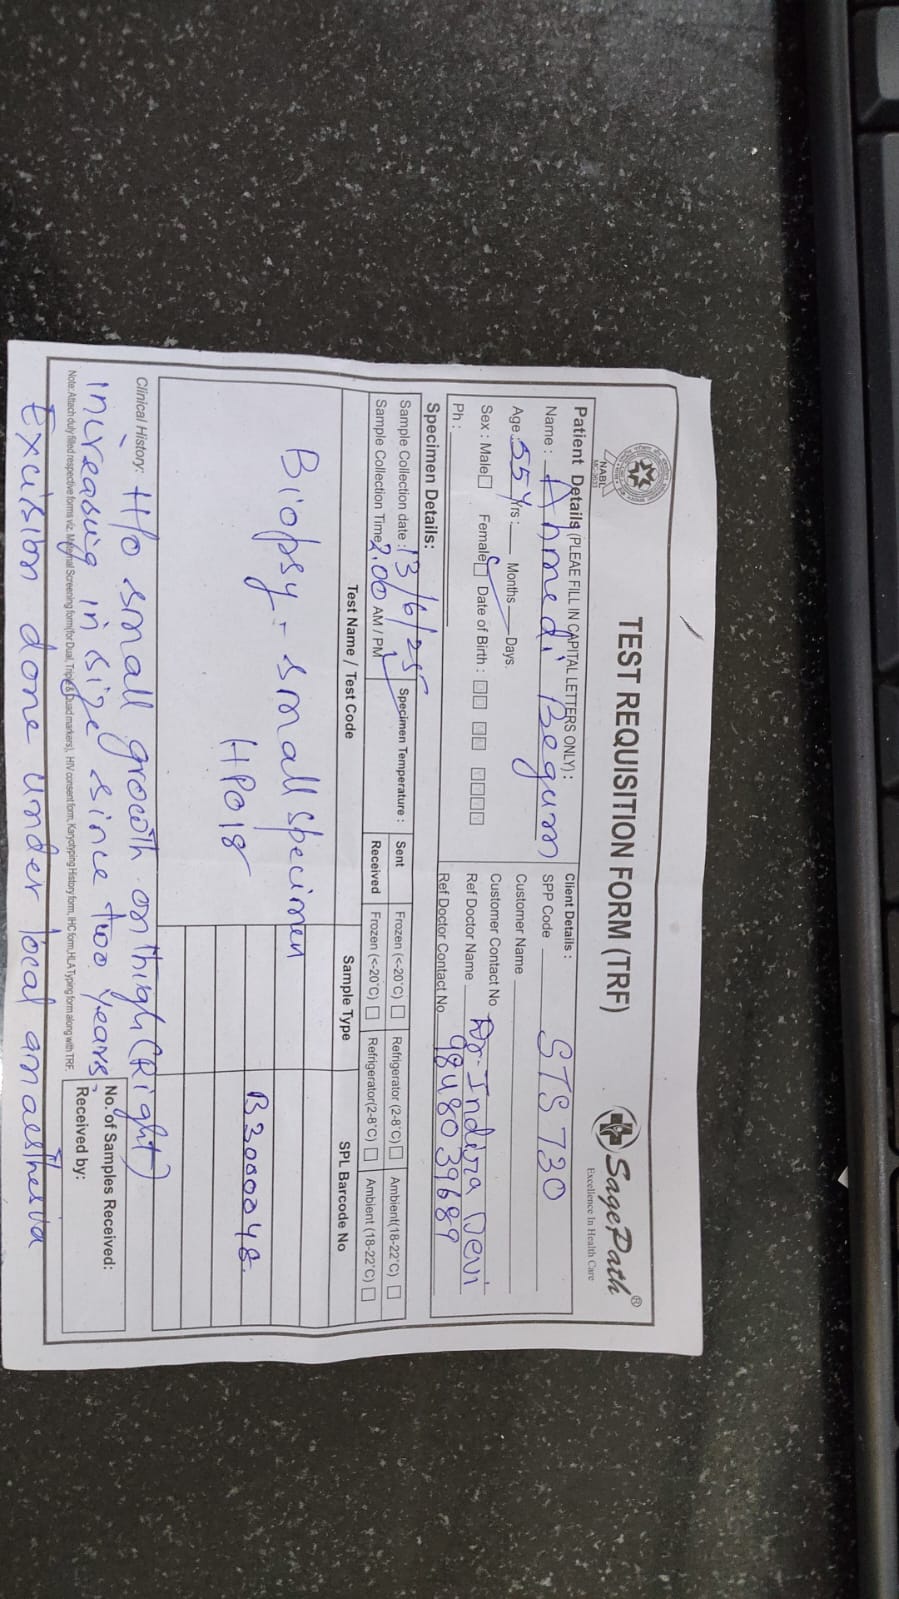 TEST REQUISITION FORM (TRF)
NABL
SagePath®
Excellence In Health Care
Patient Details (PLEAE FILL IN CAPITAL LETTERS ONLY) :
Name : Ahmedi Begum
Age : 55 Yrs : Months Days.
Sex : Male Female Date of Birth :
Ph :
Client Details :
SPP Code STS 730
Customer Name
Customer Contact No
Ref Doctor Name Dr. Indira Devi
Ref Doctor Contact No 9848039689
Specimen Details:
Sample Collection date : 13/6/25
Sample Collection Time 2.00 AM / PM
Specimen Temperature :
Sent Frozen (<-20°C) Refrigerator (2-8°C) Ambient(18-22°C)
Received Frozen (<-20°C) Refrigerator(2-8°C) Ambient (18-22°C)
Test Name / Test Code Sample Type SPL Barcode No
Biopsy - small specimen
HP018 B3000048
Clinical History: H/o small growth on thigh (Right)
increasing in size since two years,
Note: Attach duly filled respective forms viz. Maternal Screening form(for Dual, Triple & Quad markers), HIV consent form, Karyotyping History form, IHC form, HLA Typing form along with TRF.
Excision done under local anaesthesia
No. of Samples Received:
Received by: